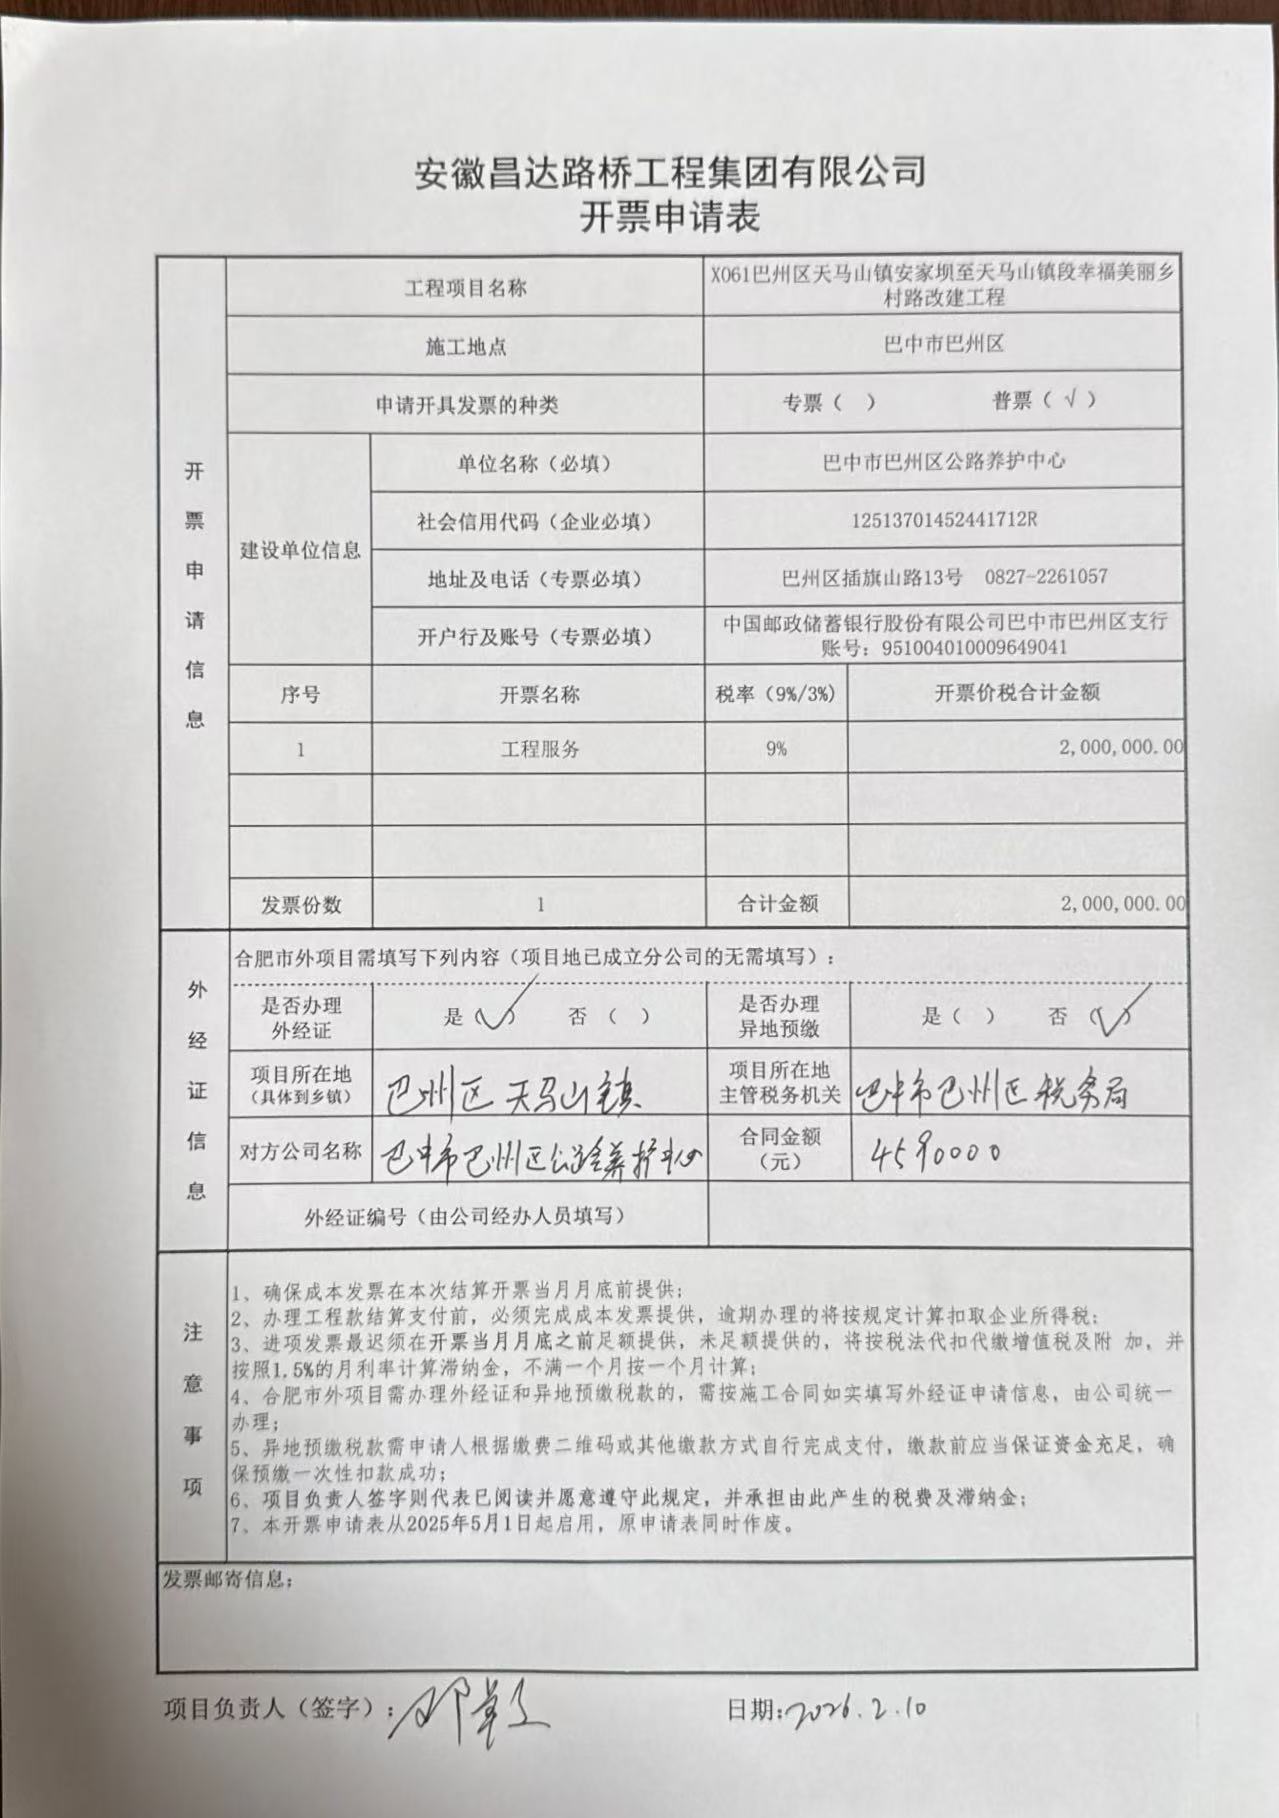 安徽昌达路桥工程集团有限公司
开票申请表
开票申请信息
工程项目名称
X061巴州区天马山镇安家坝至天马山镇段幸福美丽乡
村路改建工程
施工地点
巴中市巴州区
申请开具发票的种类
专票（ ） 普票（√）
建设单位信息
单位名称（必填）
巴中市巴州区公路养护中心
社会信用代码（企业必填）
12513701452441712R
地址及电话（专票必填）
巴州区插旗山路13号 0827-2261057
开户行及账号（专票必填）
中国邮政储蓄银行股份有限公司巴中市巴州区支行
账号：951004010009649041
序号 开票名称 税率（9%/3%） 开票价税合计金额
1 工程服务 9% 2,000,000.00
发票份数 1 合计金额 2,000,000.00
外经证信息
合肥市外项目需填写下列内容（项目地已成立分公司的无需填写）：
是否办理
外经证
是（√） 否（ ）
是否办理
异地预缴
是（ ） 否（√）
项目所在地
（具体到乡镇）
巴州区天马山镇
项目所在地
主管税务机关
巴中市巴州区税务局
对方公司名称
巴中市巴州区公路养护中心
合同金额
（元）
4590000
外经证编号（由公司经办人员填写）
注意事项
1、确保成本发票在本次结算开票当月月底前提供；
2、办理工程款结算支付前，必须完成成本发票提供，逾期办理的将按规定计算扣取企业所得税；
3、进项发票最迟须在开票当月月底之前足额提供，未足额提供的，将按税法代扣代缴增值税及附 加，并
按照1.5%的月利率计算滞纳金，不满一个月按一个月计算；
4、合肥市外项目需办理外经证和异地预缴税款的，需按施工合同如实填写外经证申请信息，由公司统一
办理；
5、异地预缴税款需申请人根据缴费二维码或其他缴款方式自行完成支付，缴款前应当保证资金充足，确
保预缴一次性扣款成功；
6、项目负责人签字则代表已阅读并愿意遵守此规定，并承担由此产生的税费及滞纳金；
7、本开票申请表从2025年5月1日起启用，原申请表同时作废。
发票邮寄信息：
项目负责人（签字）：
日期:2026.2.10